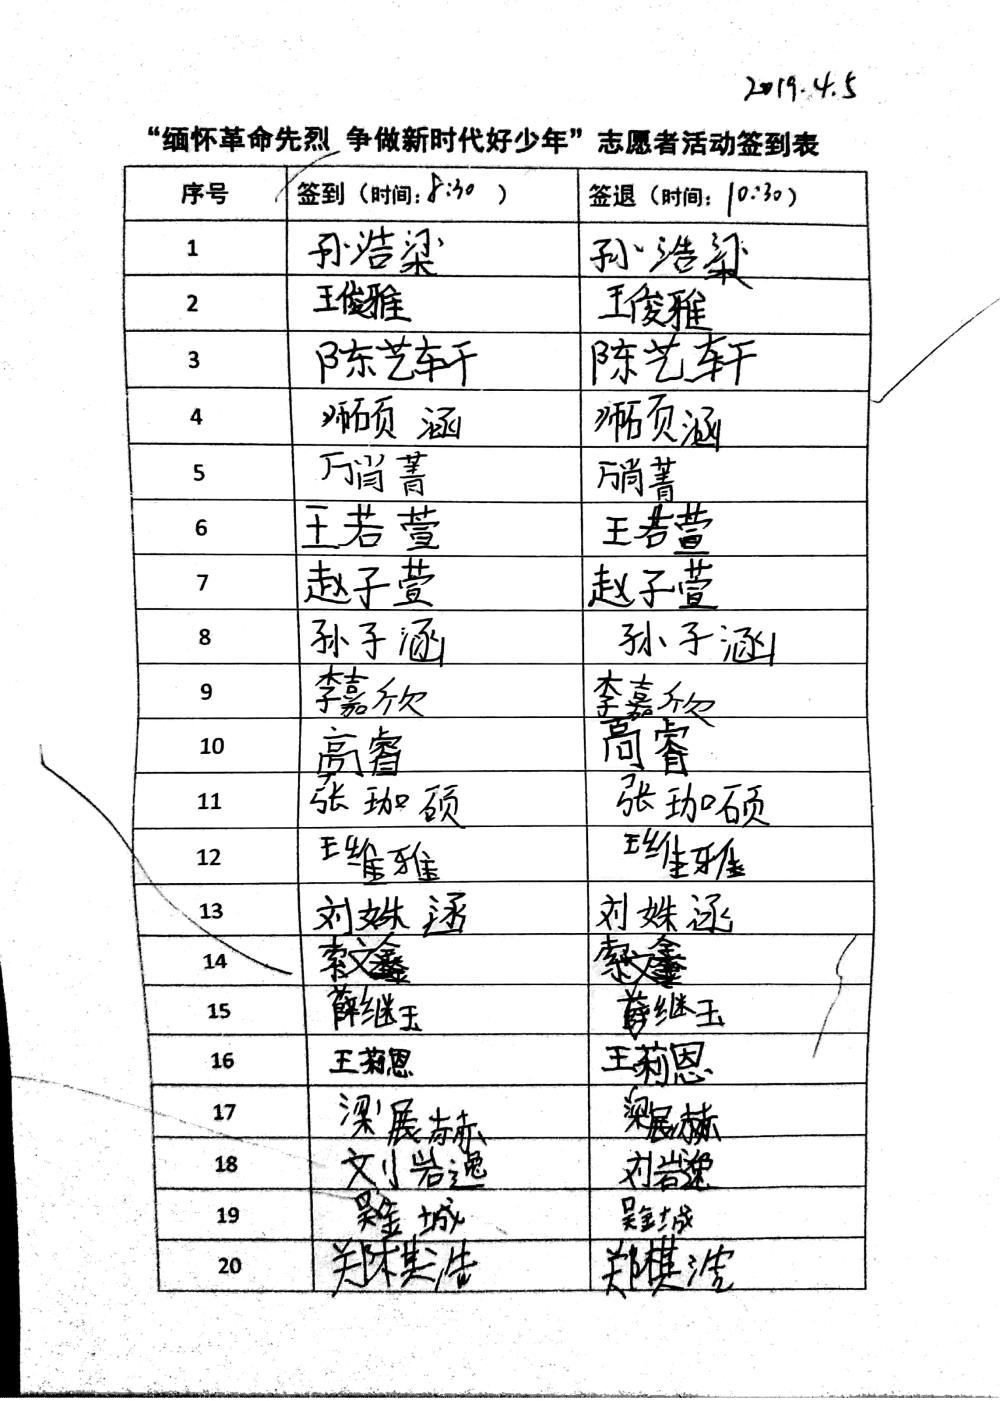 2019.4.5
“缅怀革命先烈 争做新时代好少年”志愿者活动签到表
序号 签到（时间：8:30 ） 签退（时间：10:30）
1 孙浩梁 孙浩梁
2 王俊雅 王俊雅
3 陈艺轩 陈艺轩
4 师硕涵 师硕涵
5 万肖菁 万肖菁
6 王若萱 王若萱
7 赵子萱 赵子萱
8 孙子涵 孙子涵
9 李嘉欣 李嘉欣
10 高睿 高睿
11 张珈硕 张珈硕
12 王维雅 王维雅
13 刘姝涵 刘姝涵
14 索文鑫 索文鑫
15 薛继玉 薛继玉
16 王莉恩 王莉恩
17 梁展赫 梁展赫
18 刘岩逸 刘岩逸
19 吴金城 吴金城
20 郑棋浩 郑棋浩